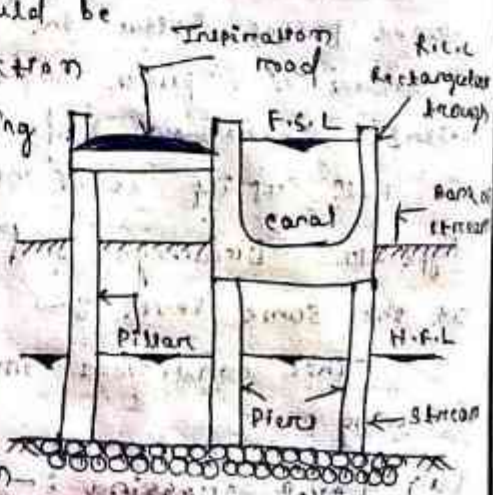 uld be
ction
ng
Inspiration
road
R.C.C
Rectangular
trough
F.S.L
canal
Bank of
stream
Pillar
H.F.L
Piers
Stream
n→